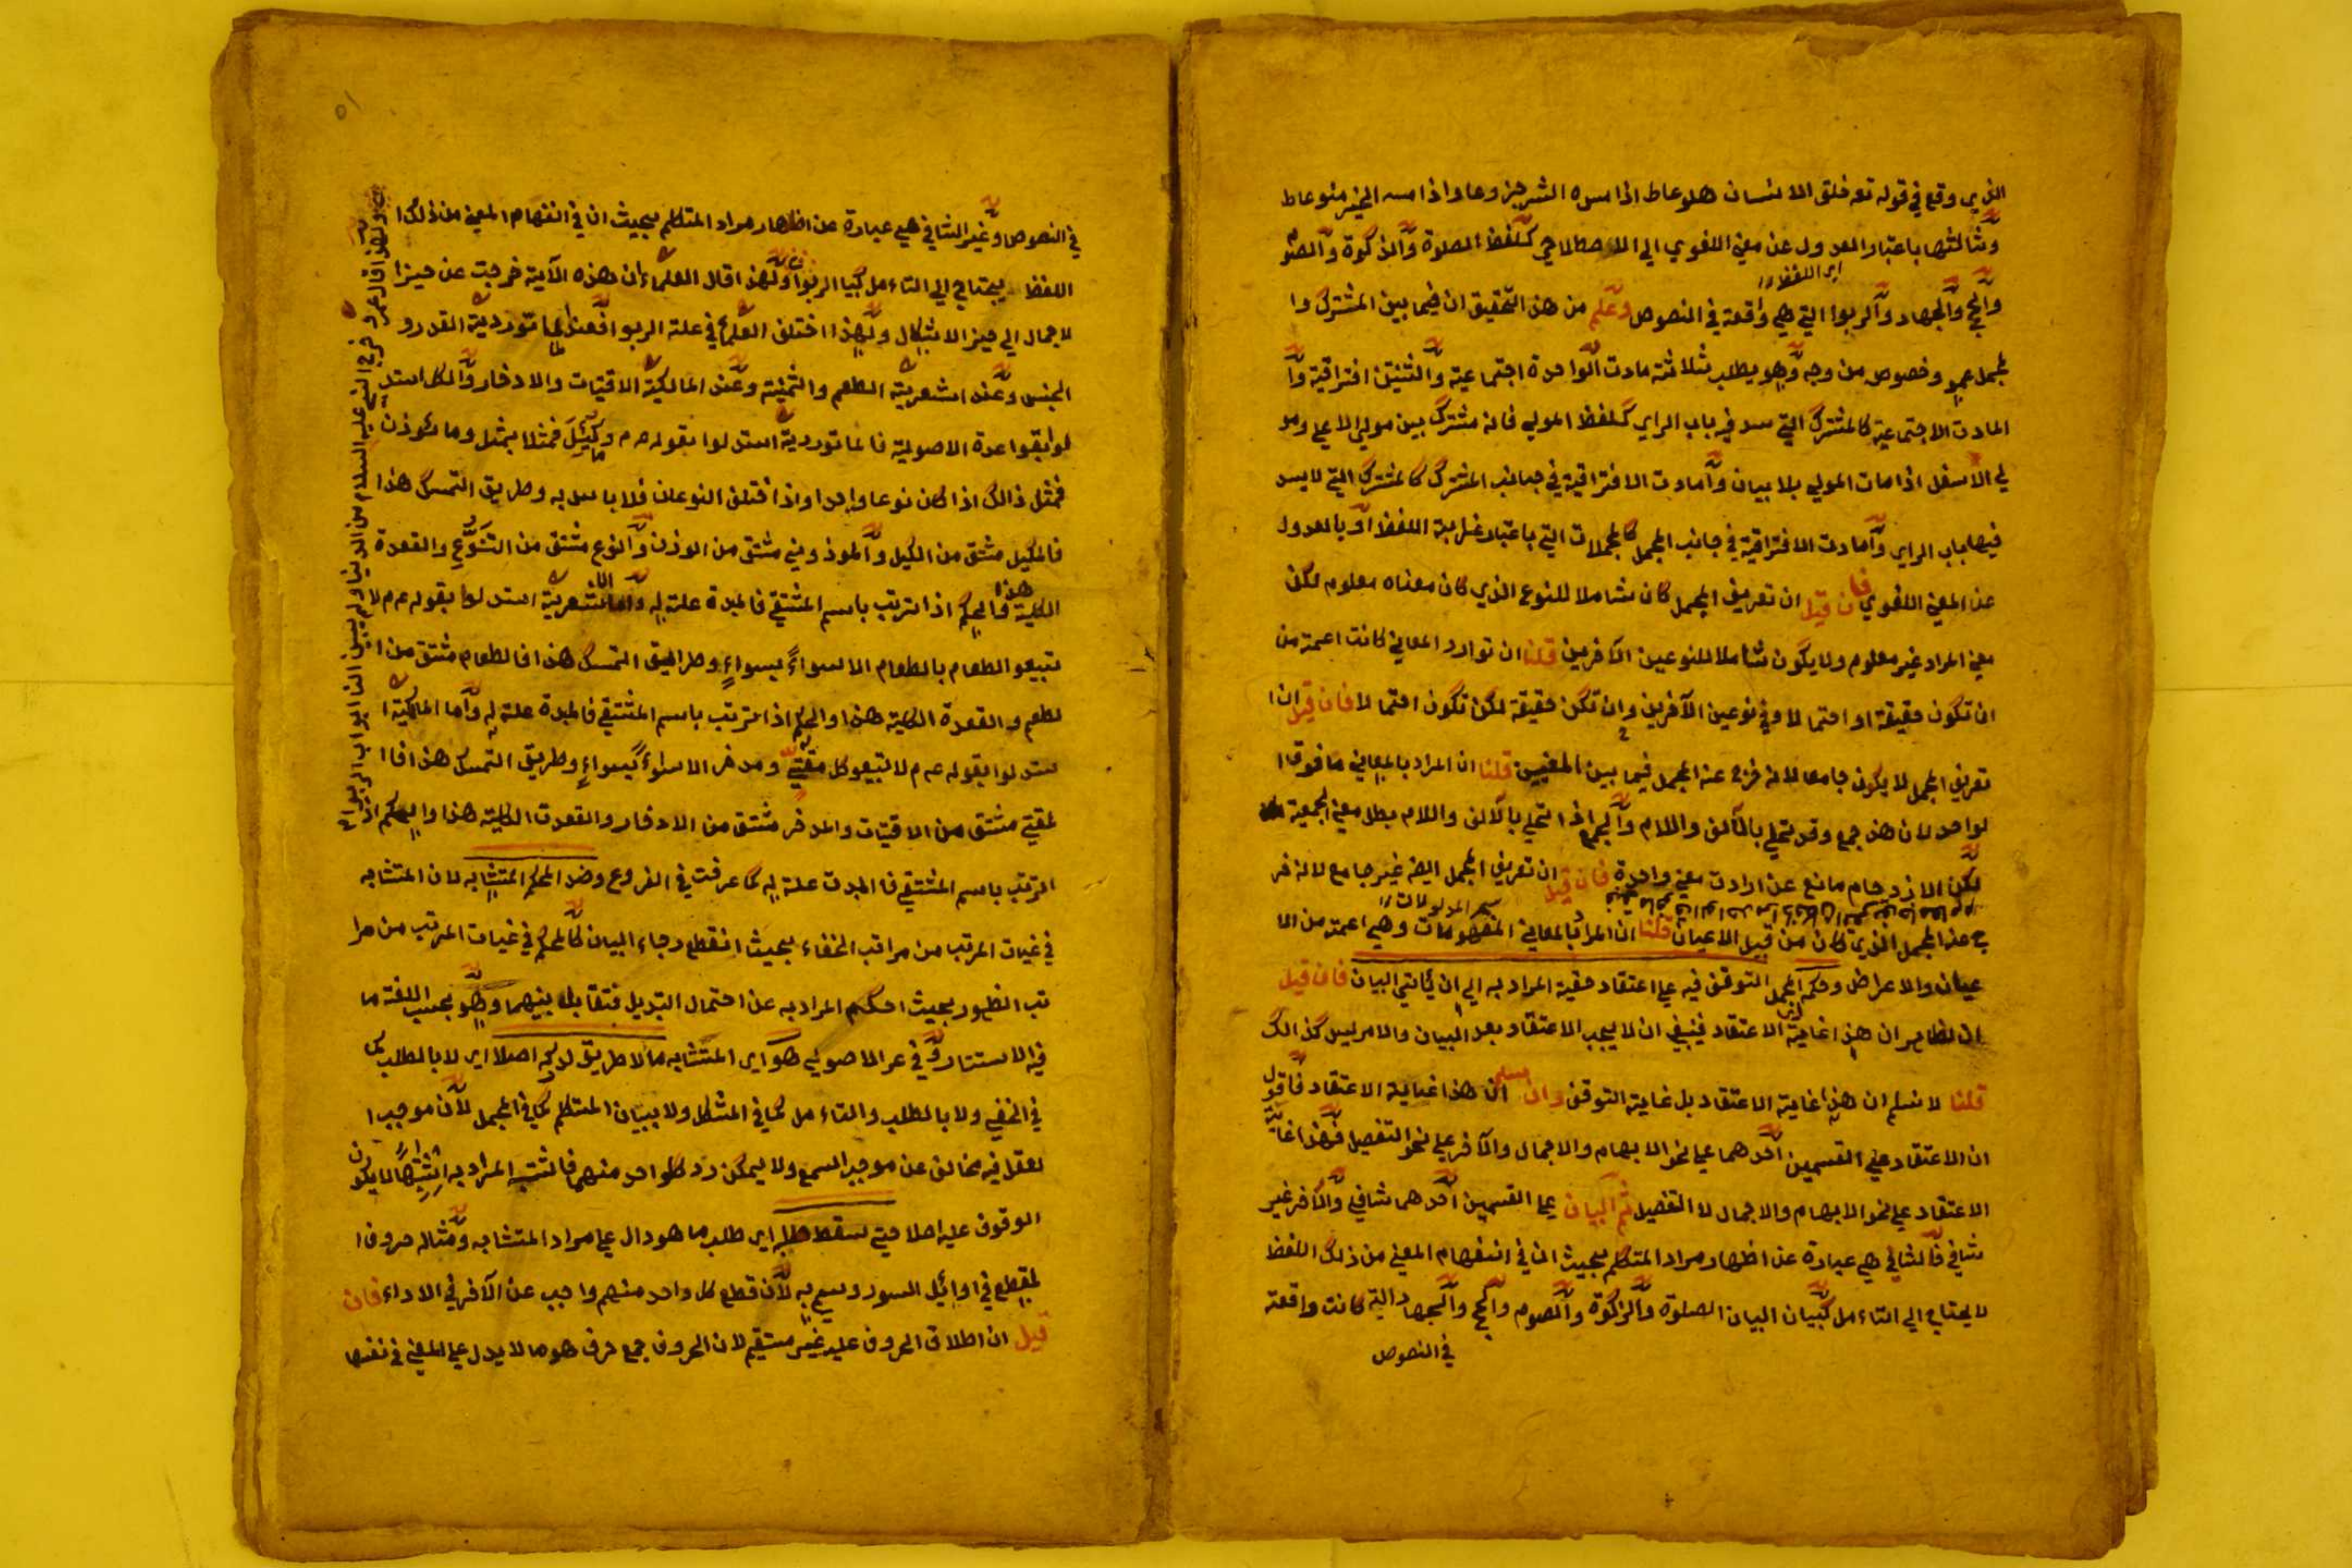 الذي وقع في قوله تع خلق الانسان هلوعا ط اذا مسه الشر جزوعا واذا مسه الخير منوعا ط
وثالثها باعتبار العدول عن معني اللغوي الي الاصطلاحي كلفظ الصلوة والزكوة والصو
اي اللفظ
والحج والجهاد والربوا التي هي واقعة في النصوص وعلم من هذا التحقيق ان فيما بين المشترك وا
لمجمل عمو وخصوص من وجه وهو يطلب ثلاثة مادت الواحدة اجتماعية والثنيتن افتراقية وا
المادت الاجتماعية كالمشترك التي سد فيه باب الراي كلفظ المولي فانه مشترك بين مولي الاعلي ومو
لي الاسفل اذا مات المولي بلا بيان وامادت الافتراقية في جانب المشترك كالمشترك التي لايسد
فيها باب الراي وامادت الافتراقية في جانب المجمل كالمجملات التي باعتبار غرابة اللفظ او بالعدول
عن المعني اللغوي فان قيل ان تعريف المجمل كان شاملا للنوع الذي كان معناه معلوم لكن
معني المراد غير معلوم ولا يكون شاملا للنوعين الآخرين قلنا ان توارد المعاني كانت اعمة من
ان تكون حقيقة او احتمالا وفي نوعين الآخرين وان تكن حقيقة لكن تكون احتمالا فان قيل ان ا
تعريف المجمل لا يكون جامعا لانه خرج عنه المجمل فيما بين المعنيين قلنا ان المراد بالمعاني ما فوق ا
لواحد لان هذا جمع وقد تحلي بالالف واللام والجمع اذا تحلي بالالف واللام بطل معني الجمعية
لكن الازدحام مانع عن ارادت معني واحدة فان قيل ان تعريف المجمل ايضا غير جامع لانه خر
ج عنه المجمل الذي كان من قبيل الاعيان قلنا ان المراد بالمعاني المفهومات وهي اعمة من الا
عيان والاعراض وحكم المجمل التوقف فيه علي اعتقاد حقية المراد به الي ان ياتي البيان فان قيل
ان الظاهر ان هذا غاية الاعتقاد فينبغي ان لا يجب الاعتقاد بعد البيان والامر ليس كذالك
قلنا لا نسلم ان هذا غاية الاعتقاد بل غاية التوقف وان سلم ان هذا غاية الاعتقاد فاقول
ان الاعتقاد علي القسمين احدهما علي نحو الابهام والاجمال والآخر علي نحو التفصيل فهذا غاية
الاعتقاد علي نحو الابهام والاجمال لا التفصيل ثم البيان علي القسمين احدهما شافي والآخر غير
شافي فالشافي هي عبارة عن اظهار مراد المتكلم بحيث ان في انفهام المعني من ذلك اللفظ
لا يحتاج الي التاءمل كبيان البيان الصلوة والزكوة والصوم والحج والجهاد التي كانت واقعة
في النصوص
في النصوص وغير الشافي هي عبارة عن اظهار مراد المتكلم بحيث ان في انفهام المعني من ذلك ا
اللفظ يحتاج الي التاءمل كبيا الربوا ولهذا قال العلماء ان هذه الآية خرجت عن حيز ا
لاجمال الي حيز الاشكال ولهذا اختلف العلماء في علة الربوا فعند ماتوردية القدر و
الجنس وعند اشعرية الطعم والثمنية وعند المالكية الاقتيات والادخار والكل استد
لوا بقواعدة الاصولية فالماتوردية استدلوا بقوله عم ما كيل فمثلا بمثل وما توزن
فمثل ذالك اذا كان نوعا واحدا واذا اختلف النوعان فلا باس به وطريق التمسك هذا
فالمكيل مشتق من الكيل والموزوني مشتق من الوزن والنوع مشتق من التنوع والقعدة
الكلية هذا والحكم اذا ترتب باسم المشتقي فالمبدة علة له واما الاشعرية استدلوا بقوله عم لا
تبيعو الطعام بالطعام الا سواء بسواء وطرايق التمسك هذا فالطعام مشتق من ا
لطعم والقعدة الكلية هذا والحكم اذا ترتب باسم المشتقي فالمبدة علة له واما المالكية ا
ستدلوا بقوله عم لا تبيعو كل مقتي ومدخر الا سواء بسواء وطريق التمسك هذا فا ا
لمقتي مشتق من الاقتيات والمدخر مشتق من الادخار والقعدت الكلية هذا والحكم اذ
الترتب باسم المشتقي فالمبدت علة له كما عرفت في الفروع وضد المحكم المتشابه لان المتشابه
في غيات المرتب من مراتب الخفاء بحيث انقطع رجاء البيان كالمحكم في غيات المرتب من مرا
تب الظهور بحيث احكم المراد به عن احتمال التبديل فتقابل بينهما وهو بحسب اللغة ما
فيه الاستتار وفي عر الاصولي هو اي المتشابه ما لا طريق لدركه اصلا اي لا بالطلب كما
في الخفي ولا بالطلب والتاءمل كما في المشكل ولا ببيان المتكلم كما في المجمل لان موجب ا
لعقل فيه مخالف عن موجب السمع ولا يمكن رد كل واحد منهما فالشتبه المراد به اشتباها لا يكون
الوقوف عليه اصلا حتي سقط طلبه اي طلب ما هو دال علي مراد المتشابه ومثاله حروف ا
لمقطع في اوائل السور وسمي به لان قطع كل واحد منهم واجب عن الآخر في الاداء فان
قيل ان اطلاق الحروف عليه غير مستقيم لان الحروف جمع حرف هو ما لا يدل علي المعني في نفسها
ولهذا قال عمر رض خرج النبي عليه السلام من الدنيا ولم يبين لنا ابواب الربوا